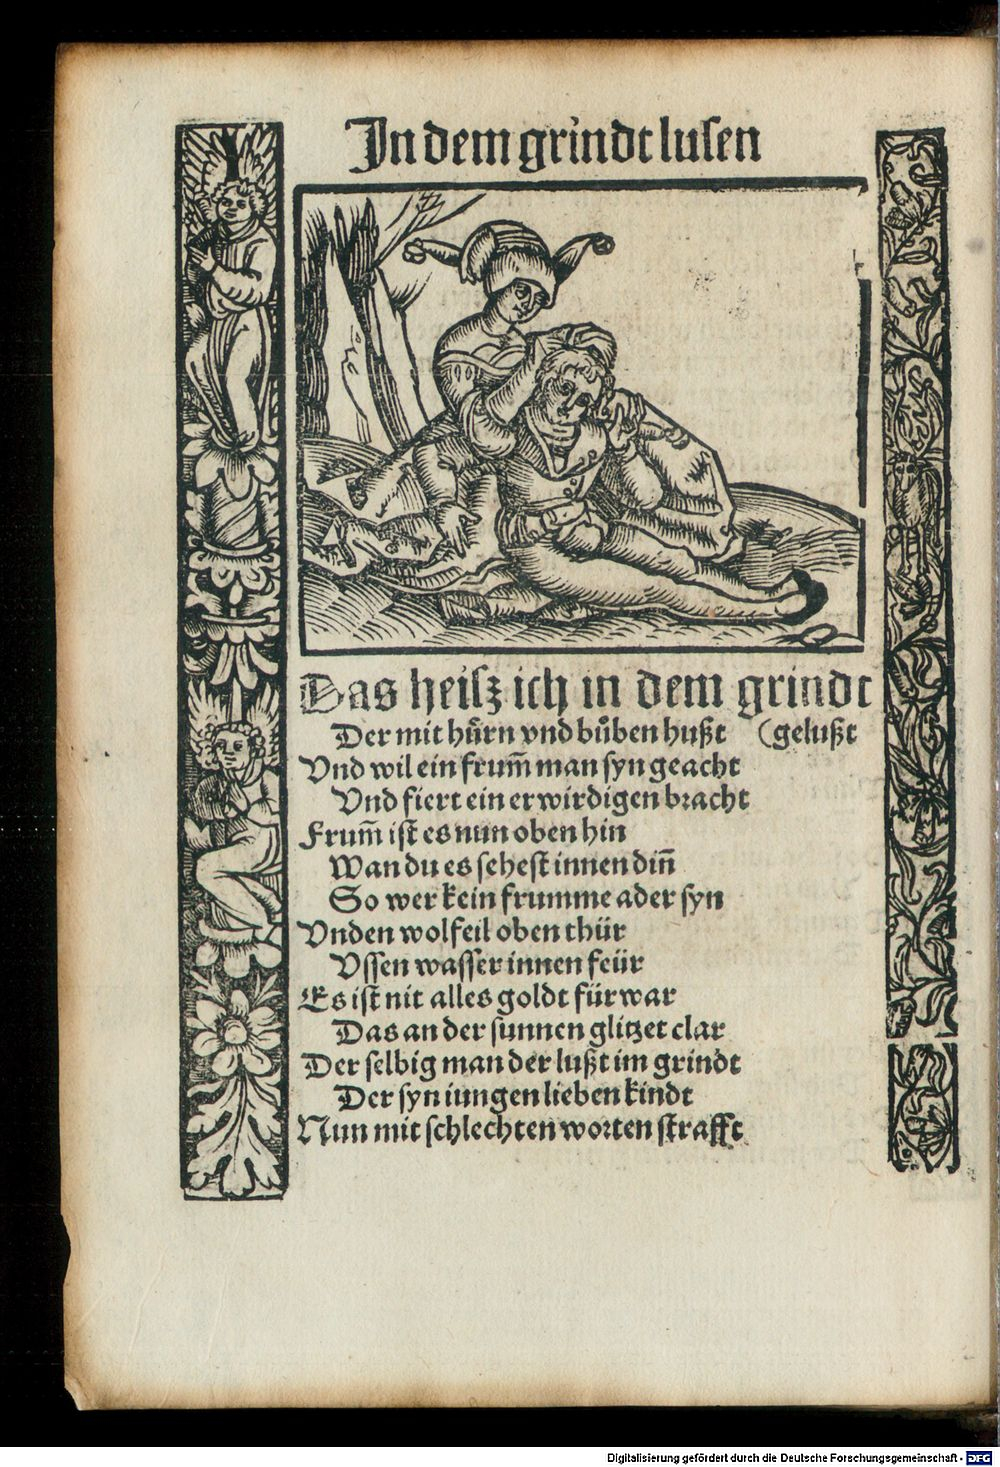 In dem grindt lusen
Das heisz ich in dem grindt
Der mit hůrn vnd bůben hußt (gelußt
Vnd wil ein frum̄ man syn geacht
Vnd fiert ein erwirdigen bracht
Frum̄ ist es nun oben hin
Wan du es sehest innen din̄
So wer kein frumme ader syn
Vnden wolfeil oben thür
Vssen wasser innen feür
Es ist nit alles goldt für war
Das an der sunnen glitzet clar
Der selbig man der lußt im grindt
Der syn iungen lieben kindt
Nun mit schlechten worten strafft
Digitalisierung gefördert durch die Deutsche Forschungsgemeinschaft - DFG